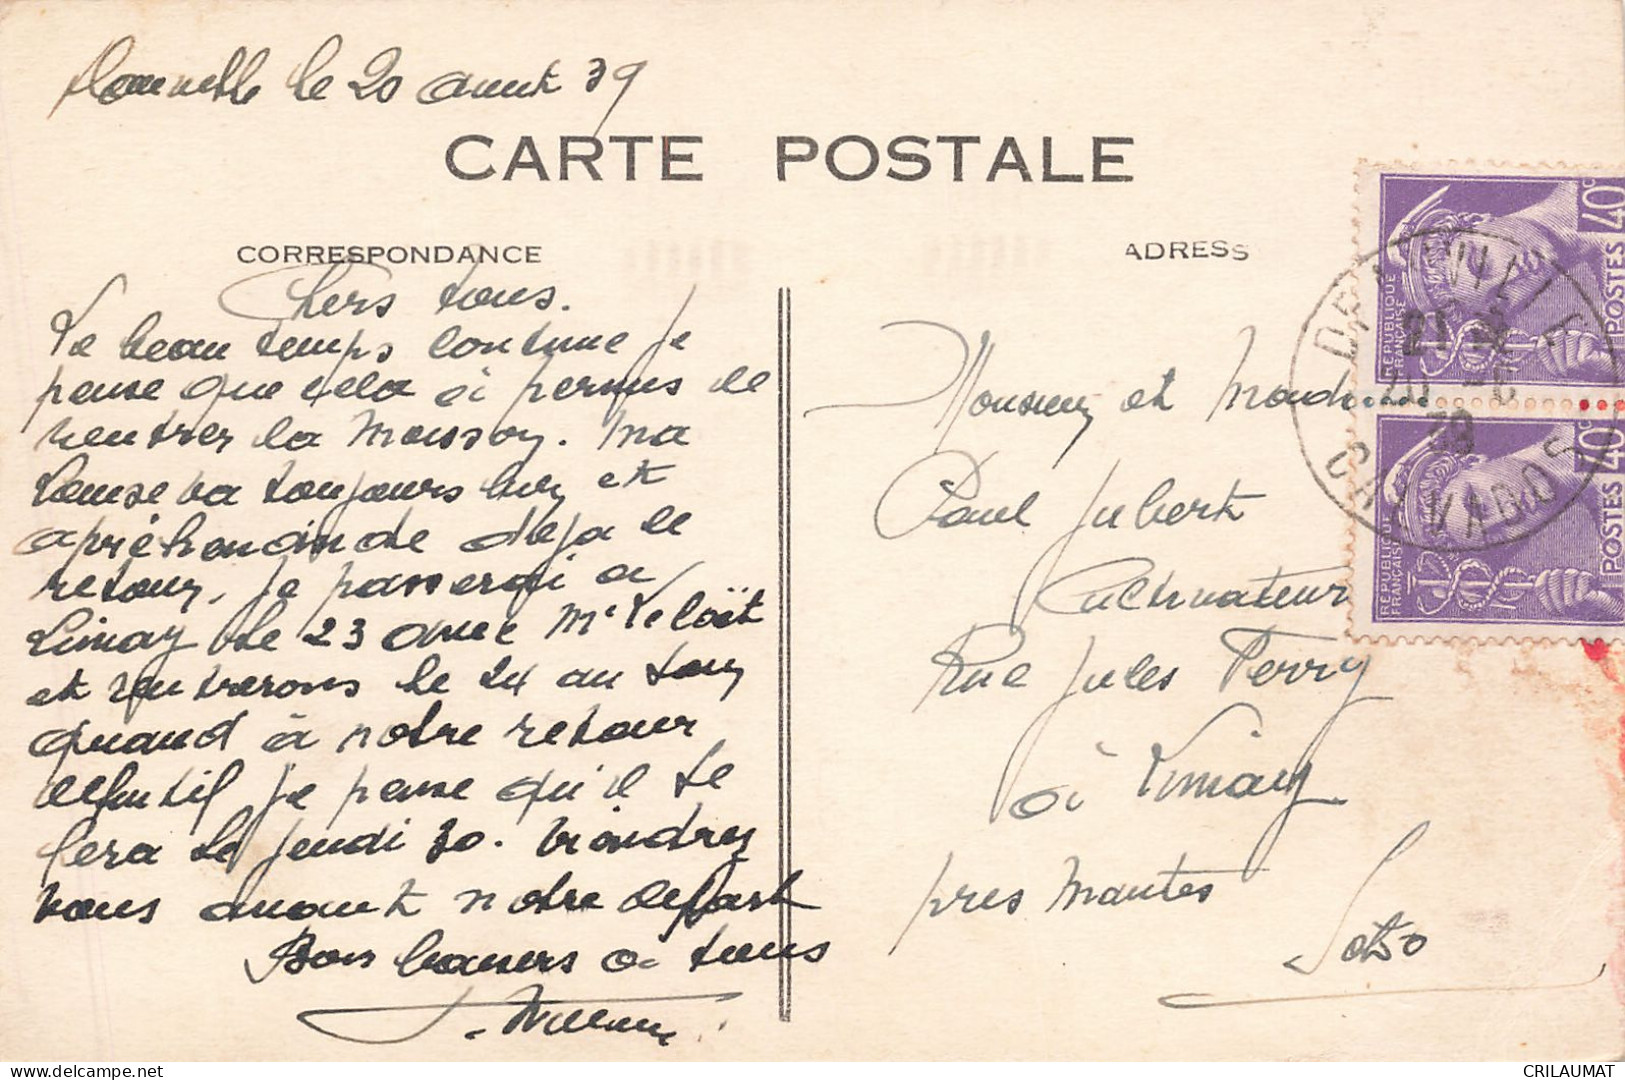 le 20 aout 39
CARTE POSTALE
CORRESPONDANCE
ADRESS
Chers tous.
Le beau temps continue je
pense que cela à permis de
rentrer la Moisson. Ma
Louise va toujours bien et
apréhende déja le
retour. Je passerai a
Limay le 23 avec Mr
et rentrerons le 24 au
quand à notre retour
définitif je pense qu'il se
fera le jeudi 30. Viendrez
vous avant notre départ
Bons baisers a tous
Monsieur et Madame
Paul Jubert
Cultivateur
Rue Jules Ferry
à Limay
près Mantes
S et O
40c
POSTES
REPUBLIQUE
FRANÇAISE
40c
POSTES
REPUBLIQUE
FRANÇAISE
CALVADOS
delcampe.net
CRILAUMAT